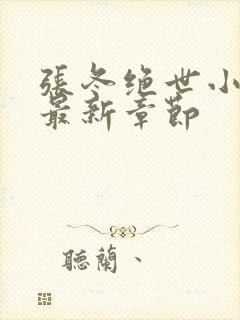 張冬绝世小
最新章節
聽蘭、